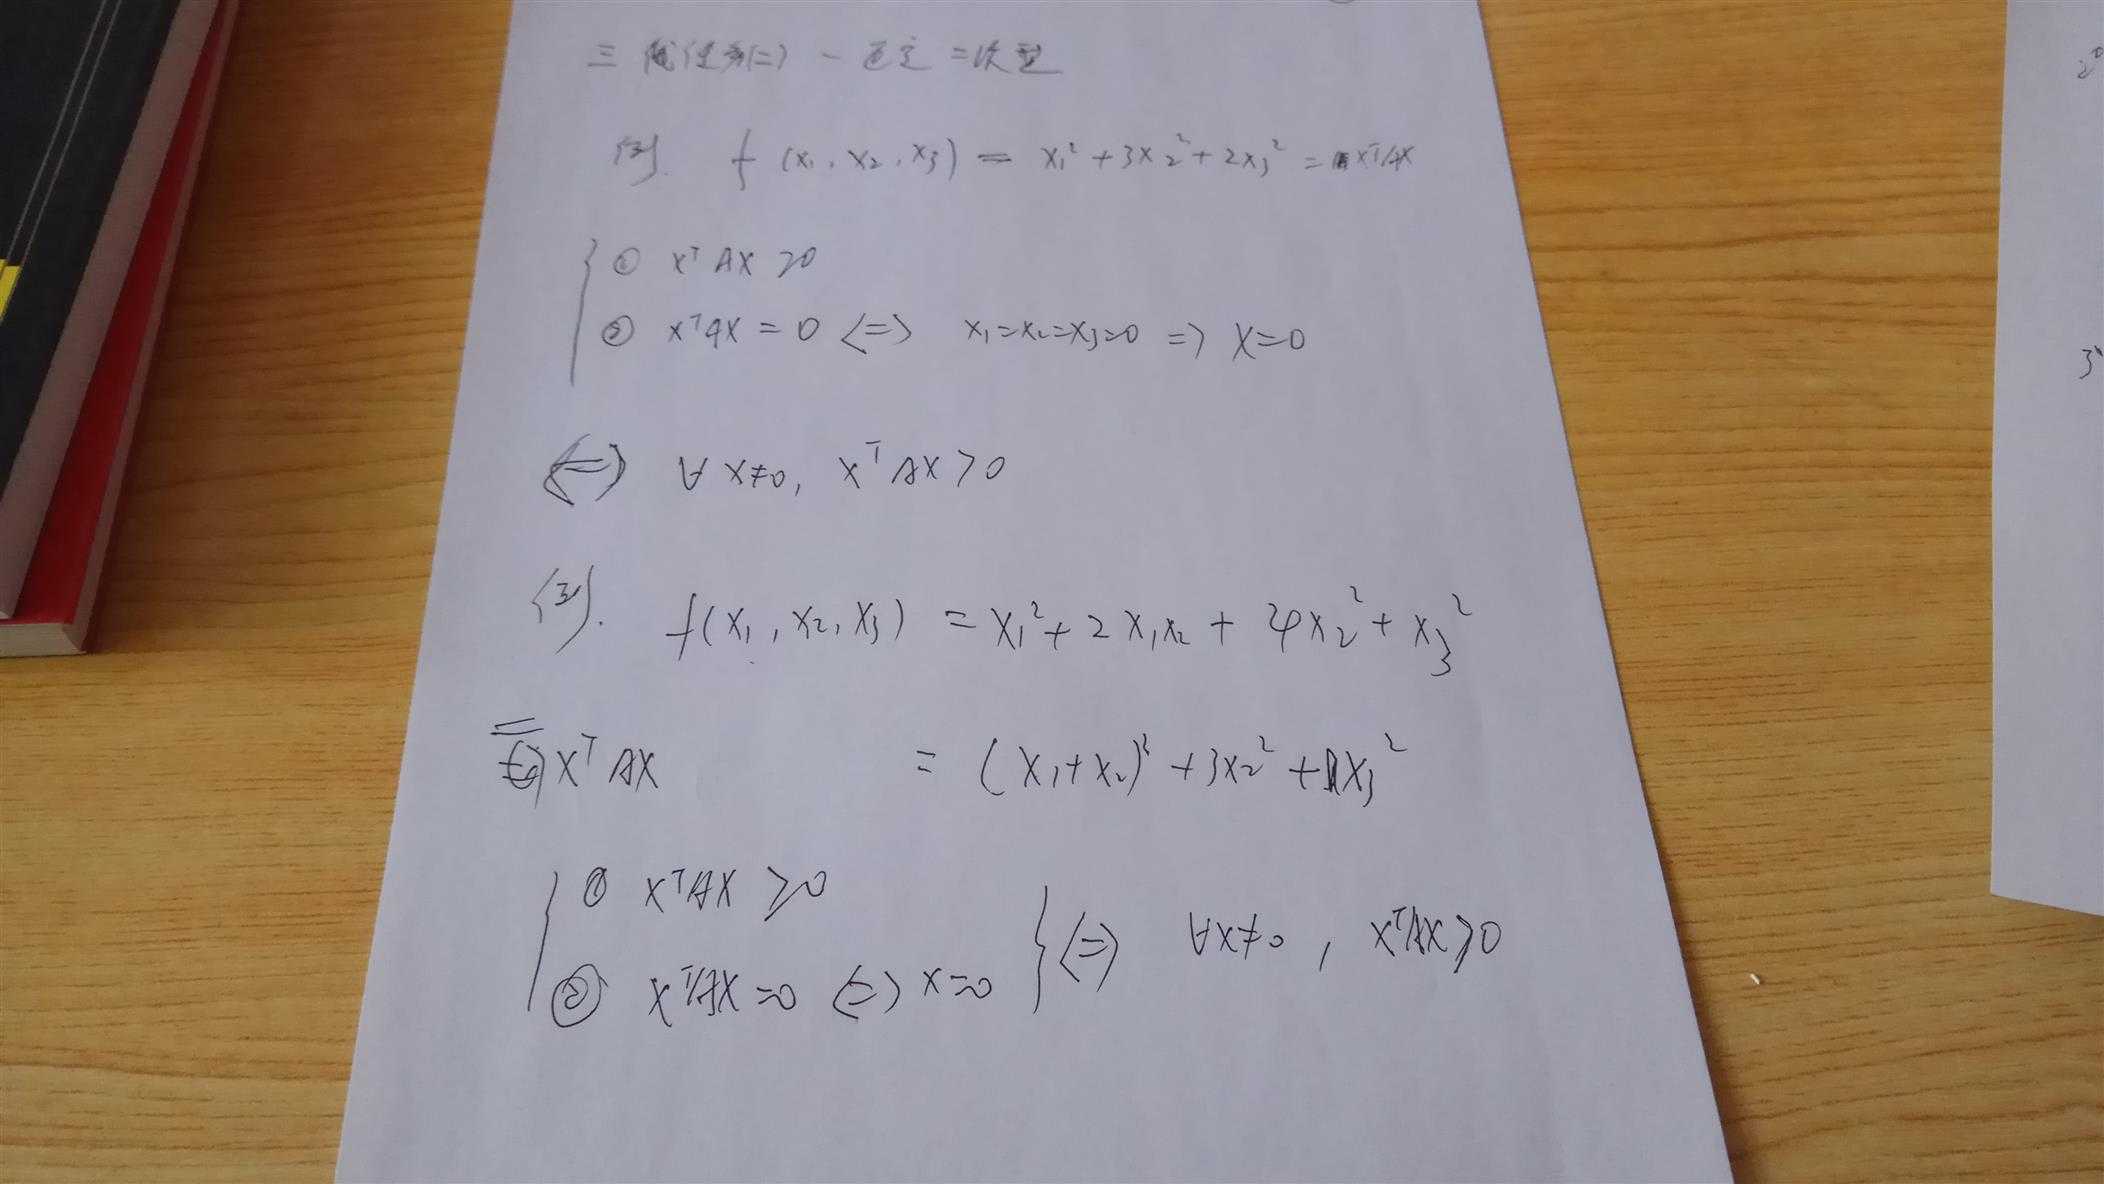 三 (二) - 正定二次型
例. f(x₁, x₂, x₃) = x₁² + 3x₂² + 2x₃² = xᵀAX
① xᵀAX ≥0
② xᵀAX = 0 <=> x₁=x₂=x₃=0 => X=0
<=> ∀ X≠0, XᵀAX > 0
例. f(x₁, x₂, x₃) = x₁² + 2x₁x₂ + 4x₂² + x₃²
= XᵀAX = (x₁+x₂)² + 3x₂² + x₃²
① XᵀAX ≥0
② XᵀAX =0 <=> X=0
<=> ∀X≠0, XᵀAX>0
2⁰
3